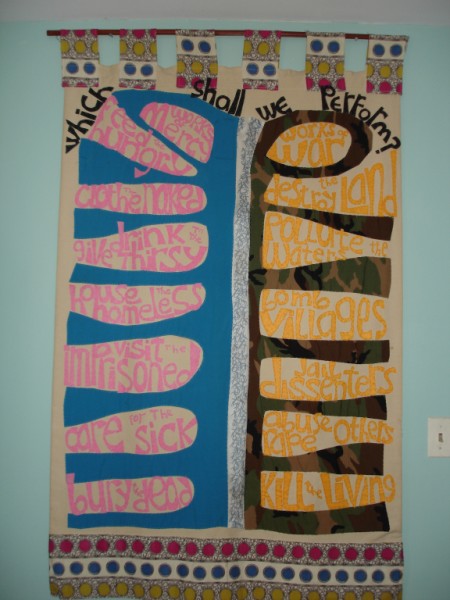 which shall we perform?
works of
mercy
feed the
hungry
clothe the naked
give drink to the
thirsty
house the
homeless
visit the
imprisoned
care for the
sick
bury the dead
works of
war
destroy the land
pollute the
waters
bomb
villages
jail
dissenters
abuse others
rape
kill the living